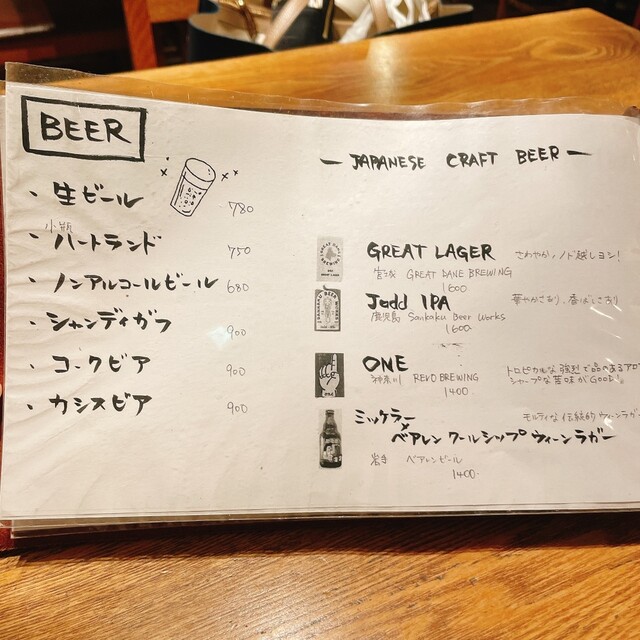 BEER
・生ビール 780
小瓶
・ハートランド 750
・ノンアルコールビール 680
・シャンディガフ 900
・コークビア 900
・カシスビア 900
— JAPANESE CRAFT BEER —
GREAT LAGER さわやか、ノド越しヨシ!
宮城 GREAT DANE BREWING
1600
Jadd IPA 華やかさあり、香ばしさあり
鹿児島 Sankaku Beer Works
1600-
ONE トロピカルな強烈で品のあるアロ
神奈川 REVO BREWING シャープな苦味がGOOD!
1400
ミッケラー モルティな伝統的ウィーンラガ
×
ベアレン クールシップ ウィーンラガー
岩手 ベアレンビール
1400-